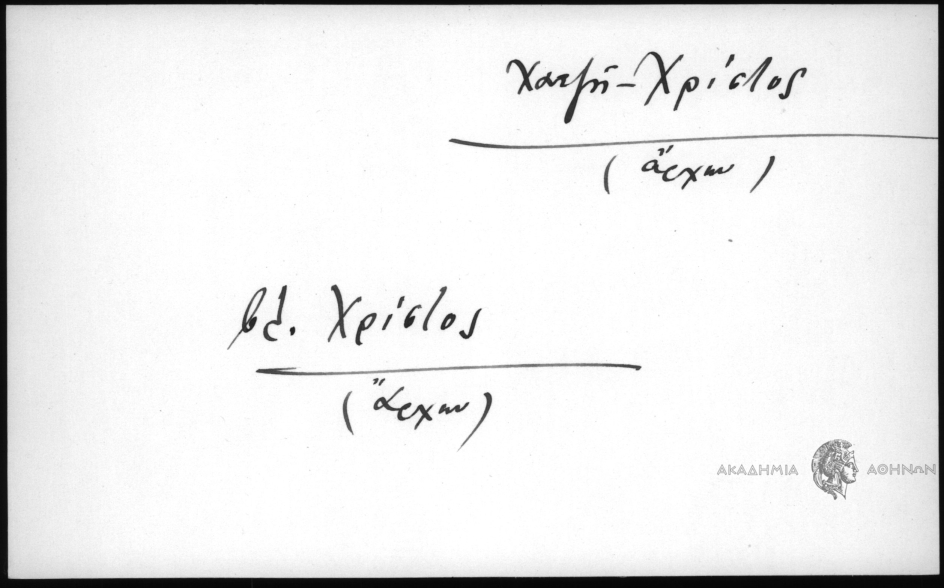 Χατζῆ-Χρίστος
(ἄρχων)
βλ. Χρίστος
(ἄρχων)
ΑΚΑΔΗΜΙΑ ΑΘΗΝΩΝ